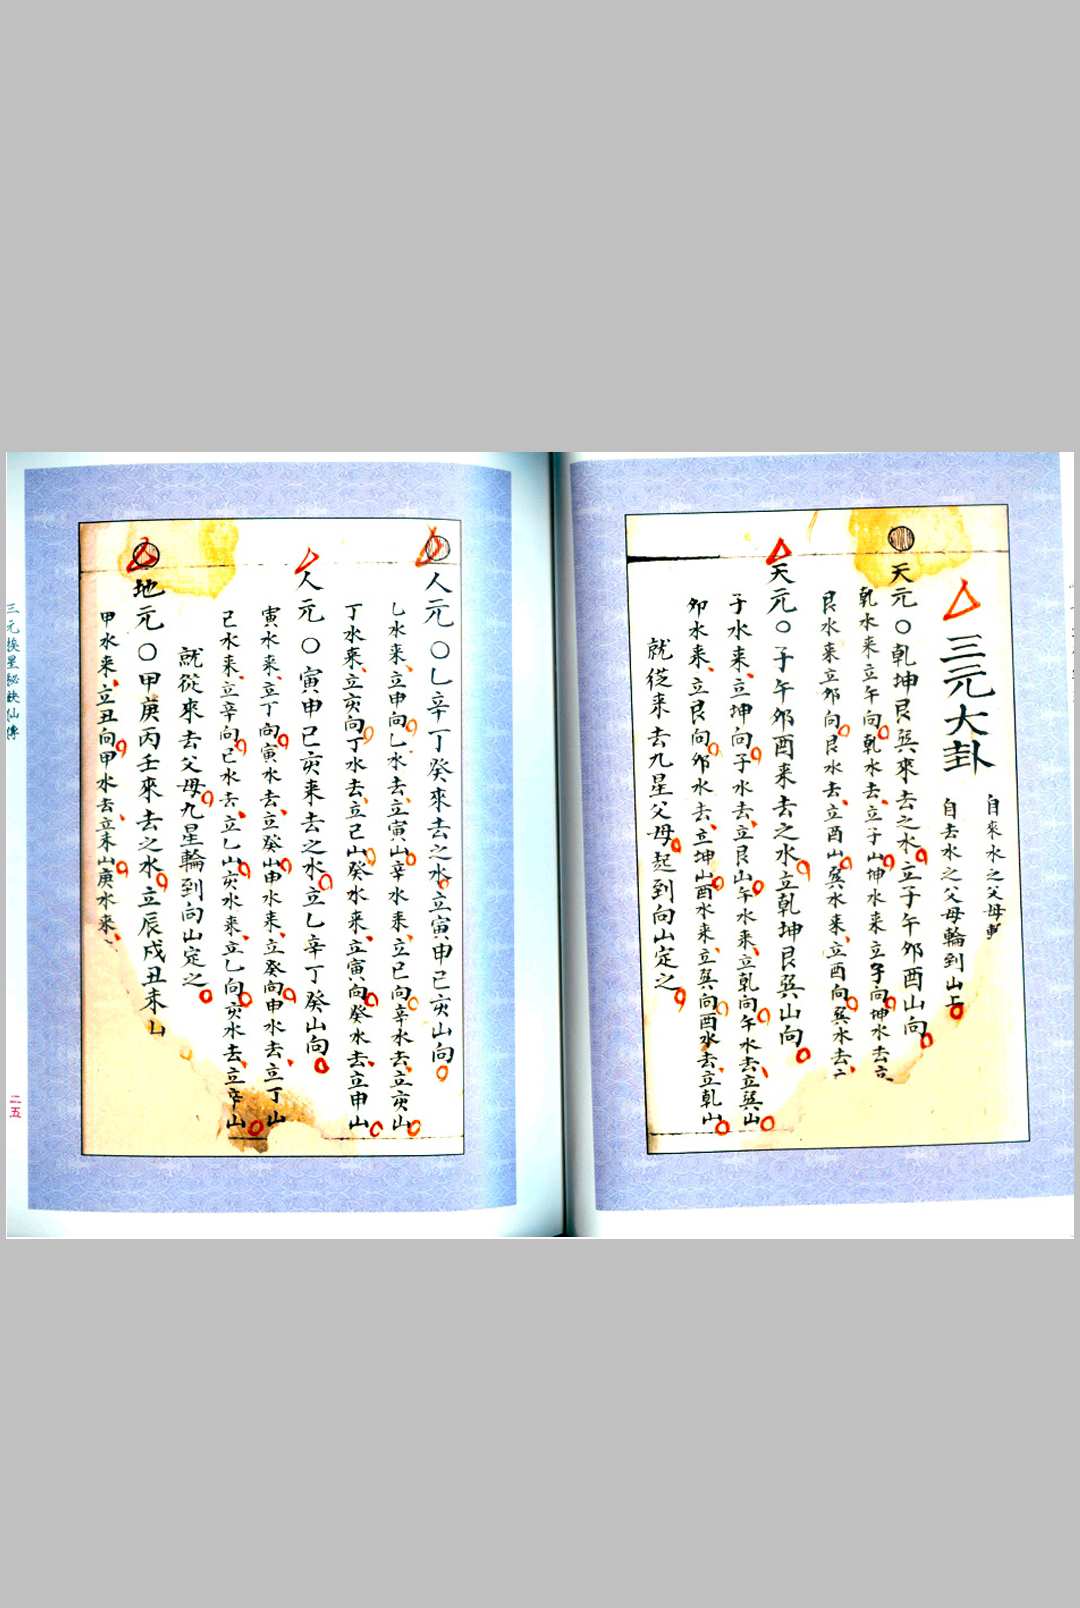 三元大卦
自來水之父母
自去水之父母輪到山上
天元〇乾坤艮巽來去之水立子午卯酉山向
乾水来立午向乾水去立子山坤水来立子向坤水去立
艮水来立卯向艮水去立酉山巽水来立酉向巽水去
天元〇子午卯酉来去之水立乾坤艮巽山向
子水来立坤向子水去立艮山午水来立乾向午水去立巽山
卯水来立艮向卯水去立坤山酉水来立巽向酉水去立乾山
就從来去九星父母起到向山定之
人元〇乙辛丁癸來去之水立寅申巳亥山向
乙水来立申向乙水去立寅山辛水来立巳向辛水去立亥山
丁水来立亥向丁水去立巳山癸水来立寅向癸水去立申山
人元〇寅申巳亥来去之水立乙辛丁癸山向
寅水来立丁向寅水去立癸山申水来立癸向申水去立丁山
巳水来立辛向巳水去立乙山亥水来立乙向亥水去立辛山
就從來去父母九星輪到向山定之
地元〇甲庚丙壬來去之水立辰戌丑未山
甲水来立丑向甲水去立未山庚水来
三元挨星秘訣仙傳
二五